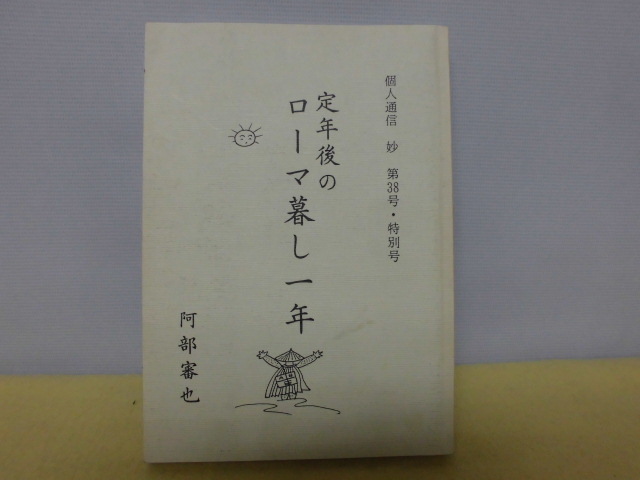 個人通信　妙　第38号・特別号
定年後の
ローマ暮し一年
阿部審也